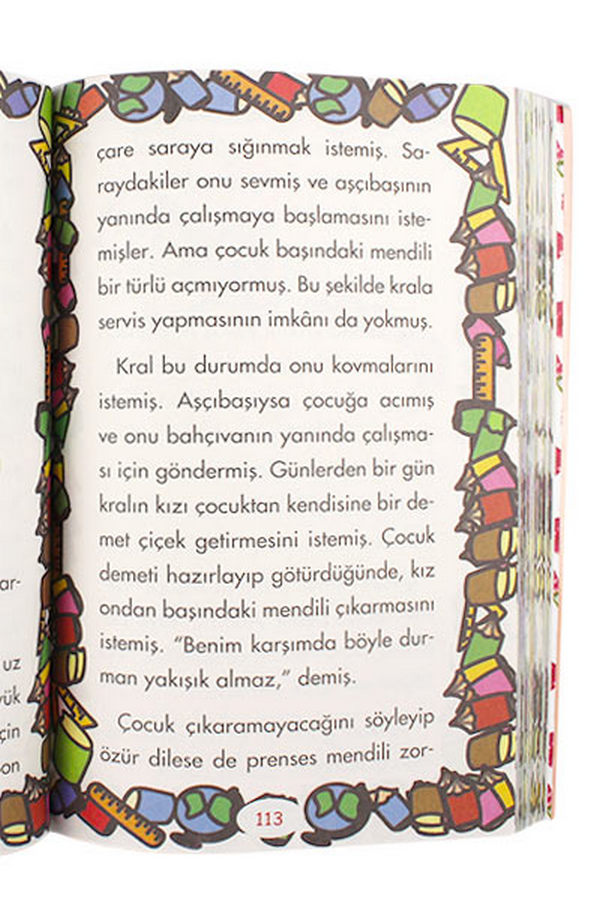 çare saraya sığınmak istemiş. Sa-
raydakiler onu sevmiş ve aşçıbaşının
yanında çalışmaya başlamasını iste-
mişler. Ama çocuk başındaki mendili
bir türlü açmıyormuş. Bu şekilde krala
servis yapmasının imkânı da yokmuş.
Kral bu durumda onu kovmalarını
istemiş. Aşçıbaşıysa çocuğa acımış
ve onu bahçıvanın yanında çalışma-
sı için göndermiş. Günlerden bir gün
kralın kızı çocuktan kendisine bir de-
met çiçek getirmesini istemiş. Çocuk
demeti hazırlayıp götürdüğünde, kız
ondan başındaki mendili çıkarmasını
istemiş. “Benim karşımda böyle dur-
man yakışık almaz,” demiş.
Çocuk çıkaramayacağını söyleyip
özür dilese de prenses mendili zor-
113